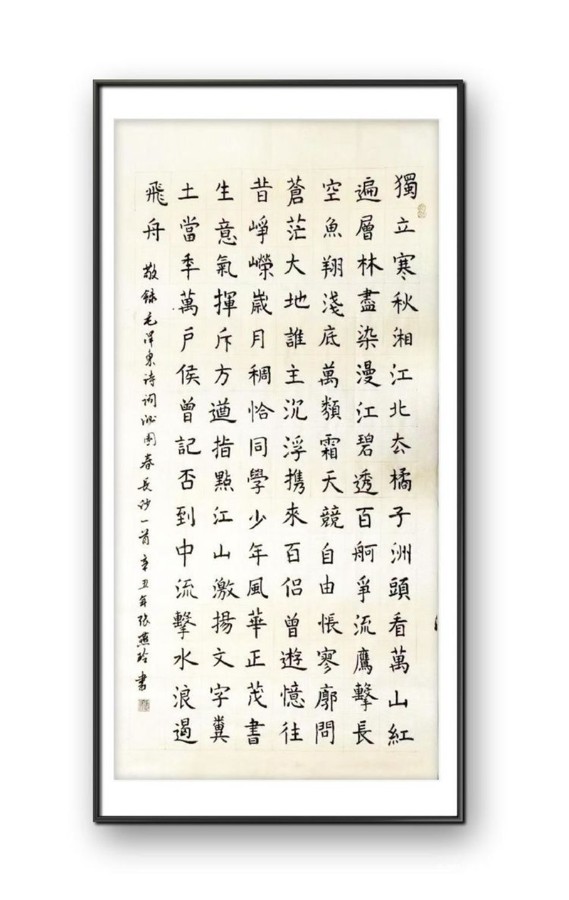 獨立寒秋湘江北厺橘子洲頭看萬山紅
遍層林盡染漫江碧透百舸爭流鷹擊長
空魚翔淺底萬類霜天競自由悵寥廓問
蒼茫大地誰主沉浮携來百侶曾遊憶往
昔崢嶸歲月稠恰同學少年風華正茂書
生意氣揮斥方遒指點江山激揚文字糞
土當年萬戶侯曾記否到中流擊水浪遏
飛舟 敬錄毛澤東詩詞沁園春長沙一首辛丑年張燕玲書